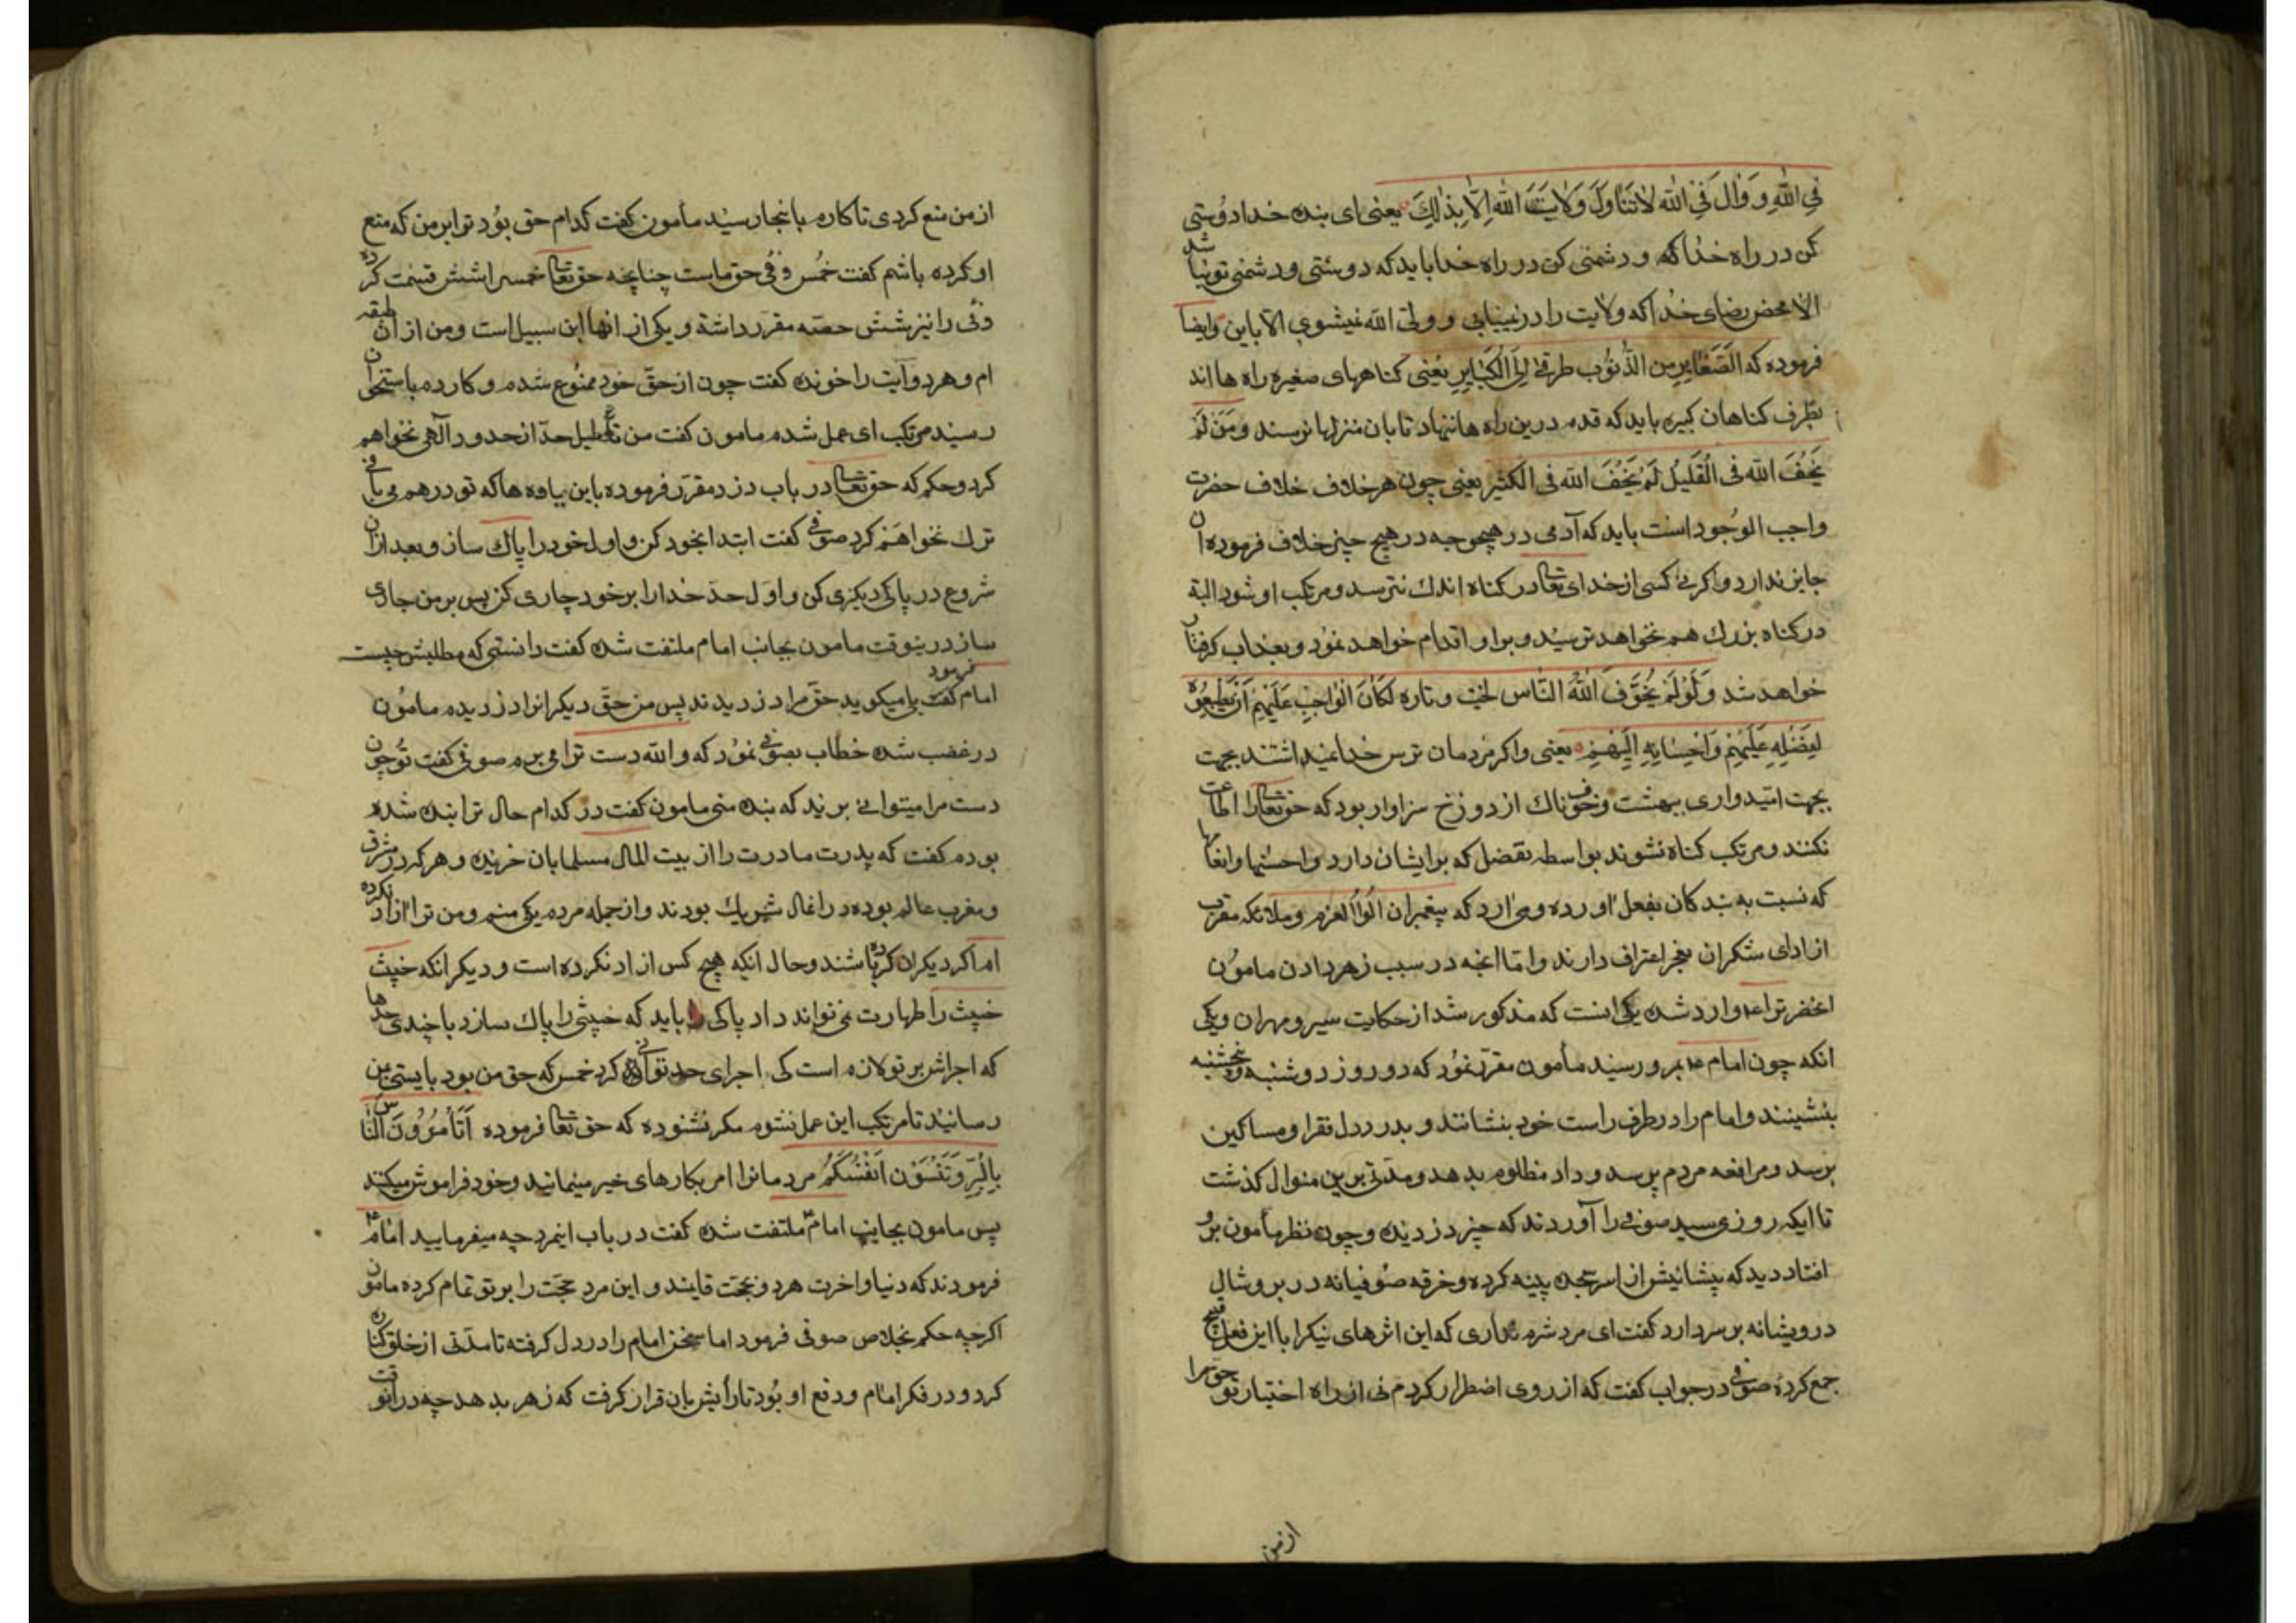 فِي اللّٰهِ وَ وَالَ فِي اللّٰه لاٰتَنَاوَلَ وَلاٰيَتَ اللّٰهِ اِلاّٰ بِذٰلِكَ يعنى اى بنده خدا دوُستى
كن در راه خداكه و دشمنى كن در راه خدا بايد كه دوستى و دشمنى تو نباشد
الا محض رضاى خدا كه ولايت را در نميابى و ولىّ الله نميشوى الاّ باين وايضا
فرموده كه الصَغٰايِرِ من الذّنُوُب طرقٌ اِلَى الْكَبٰايِرِ يعنى كناههاى صغيره راه ها اند
بطرف كناهان كبيره بايد كه قدم درين راه ها ننهاد تا بان منزلها نرسند ومَنَ لَمْ
يَخُفَ اللّه فى الْقَليُل لَمْ يَخُفَ اللّه فى الكثير يعنى چون هر خلاف خلاف حضرت
واجب الوجُود است بايد كه آدمى در هيچوجه در هيچ چيز خلاف فرموده ان
جايز ندارد واكر نى كسى از خداى تعا در كناه اندك نترسد ومرتكب او شود البته
در كناه بزرك هم نخواهد ترسيد وبر او اقدام خواهد نموُد و بعذاب كرفتار
خواهد شد وَلَوْ لَمْ يُخَوَّف اللّٰهُ النّاس لجنت و ناره لَكٰانَ الْوٰاجِبِ عَلَيْهِمْ اَنْ يُطِيعُوه
لِفَضْلِهِ عَلَيْهِمْ وَاحْسٰانِهِ اِلَيْهِمْ يعنى واكر مَردمان ترس خدا نميداشتند بجهت
بجهت اميدوارى ببهشت وخوفناك از دوزخ سزاوار بود كه حقتعا را اطاعت
نكنند ومرتكب كناه نشوند بواسطه تفضل كه بر ايشان دارد واحسٰنها وانعامها
كه نسبت به بندكان بفعل اورده ومى ارد كه پيغمبران الُوا العزم وملائكه مقرب
از اداى شكران بعجز اعتراف دارند وامّا انچه در سبب زهر دادن ماموُن
انحضرترا ع وارد شده يكى انست كه مذكور شد از حكايت سير ومهران ويكى
انكه چون امام ع بمرو رسيد مأمون مقرّر نمُود كه دو روز دوشنبه وپنجشنبه
بنشينند وامام را در طرف راست خود بنشانند و بدرد دل فقرا ومساكين
برسد ومرافعه مردم پرسد وداد مظلوم بدهد ومدتى برين منوال كذشت
تا ايكه روزى سيد صوفى را آوردند كه چيز دزديده و چون نظر مأمون برو
افتاد ديد كه پيشانيش از اسر سجده پينه كرده وخرقه صوُفيانه در بر و شال
درويشانه بر سر دارد كفت اى مرد شرم ندارى كه اين اثرهاى نيكرا با اين فعل قبيح
جمع كردهٔ صوفى در جواب كفت كه از روى اضطرار كردم نى از راه اختيار تو حق مرا
از من
از من منع كردى تا كارم بانجا رسيد مأمون كفت كدام حق بوُد ترا بر من كه منع
او كرده باشم كفت خمُس وفى حق ماست چنانچه حق تعا خمس را شش قسمت كرده
وفى را نيز شش حصّه مقرر داشته و يكى از انها ابن سبيل است ومن از ان طبقه
ام و هر دو آيت را خونده كفت چون از حقّ خود ممنُوع شدم و كارد باستخوان
رسيد مرتكب اى عمل شدم مامون كفت من تعطيل حدّ از حدود آلهى نخواهم
كرد وحكم كه حق تعا در باب دزد مقرّر فرموده باين ياوه ها كه تو در هم مى بافى
ترك نخواهَم كرد صوفى كفت ابتدا بخود كن و اول خود را پاك ساز و بعد از ان
شروع در پاكى ديكرى كن و اوّل حدّ خدا را بر خود جارى كن پس بر من جارى
ساز درينوقت مامون بجانب امام ملتفت شده كفت دانستى كه مطلبش چيست
امام كفت فرمود ميكويد حقّ مرا دزديدند پس من حقّ ديكرانرا دزديده مامُون
در غضب شده خطاب بصوفى نموُد كه والله دست ترا مى برم صوفى كفت توُ چون
دست مرا ميتوانى بريد كه بنده منى مامون كفت در كدام حال ترا بنده شده
بودم كفت كه پدرت مادرت را از بيت المال مسلمانان خريده و هر كه در مشرق
ومغرب عالم بوده در اغال شريك بودند و از جمله مردم يكى منم ومن ترا آزاد نكرده
ام اكر ديكران كرده باشند وحال انكه هيچ كس ازاد نكرده است و ديكر انكه خبيث
خبيث را طهارت نمى تواند داد پاكى را بايد كه خبيثى را پاك سازد با چندى حدها
كه اجراش بر تو لازم است كى اجراى حد توانى كرد خمس كه حق من بود بايستى بمن
رسانيد تا مرتكب اين عمل نشوم مكر نشنوده كه حق تعا فرموده اَتَأمُرُوُنَ النّٰاس
بِالْبِرّ وَتَنْسَوْن اَنْفُسَكُمُ مردمانرا امر بكارهاى خير مينمائيد وخود فراموش ميكنند
پس مامون بجانب امام ع ملتفت شده كفت در باب اينمرد چه ميفرماييد امام ع
فرمودند كه دنيا واخرت هر دو بحجت قايمند و اين مرد حجّت را بر تو تمام كرده مامون
اكرچه حكم بخلاص صوفى فرمود اما سخن امام را در دل كرفته تا مدتى از خلق كناره
كرد و در فكر امام ودفع او بوُد تا رأيش بان قرار كرفت كه زهر بدهد چه در انوقت